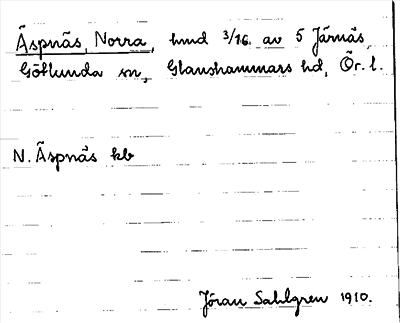 Äspnäs, Norra, hmd 3/16 av 5 Järnäs,
Götlunda sn, Glanshammars hd, Ör. l.
N. Äspnäs kb
Jöran Sahlgren 1910.